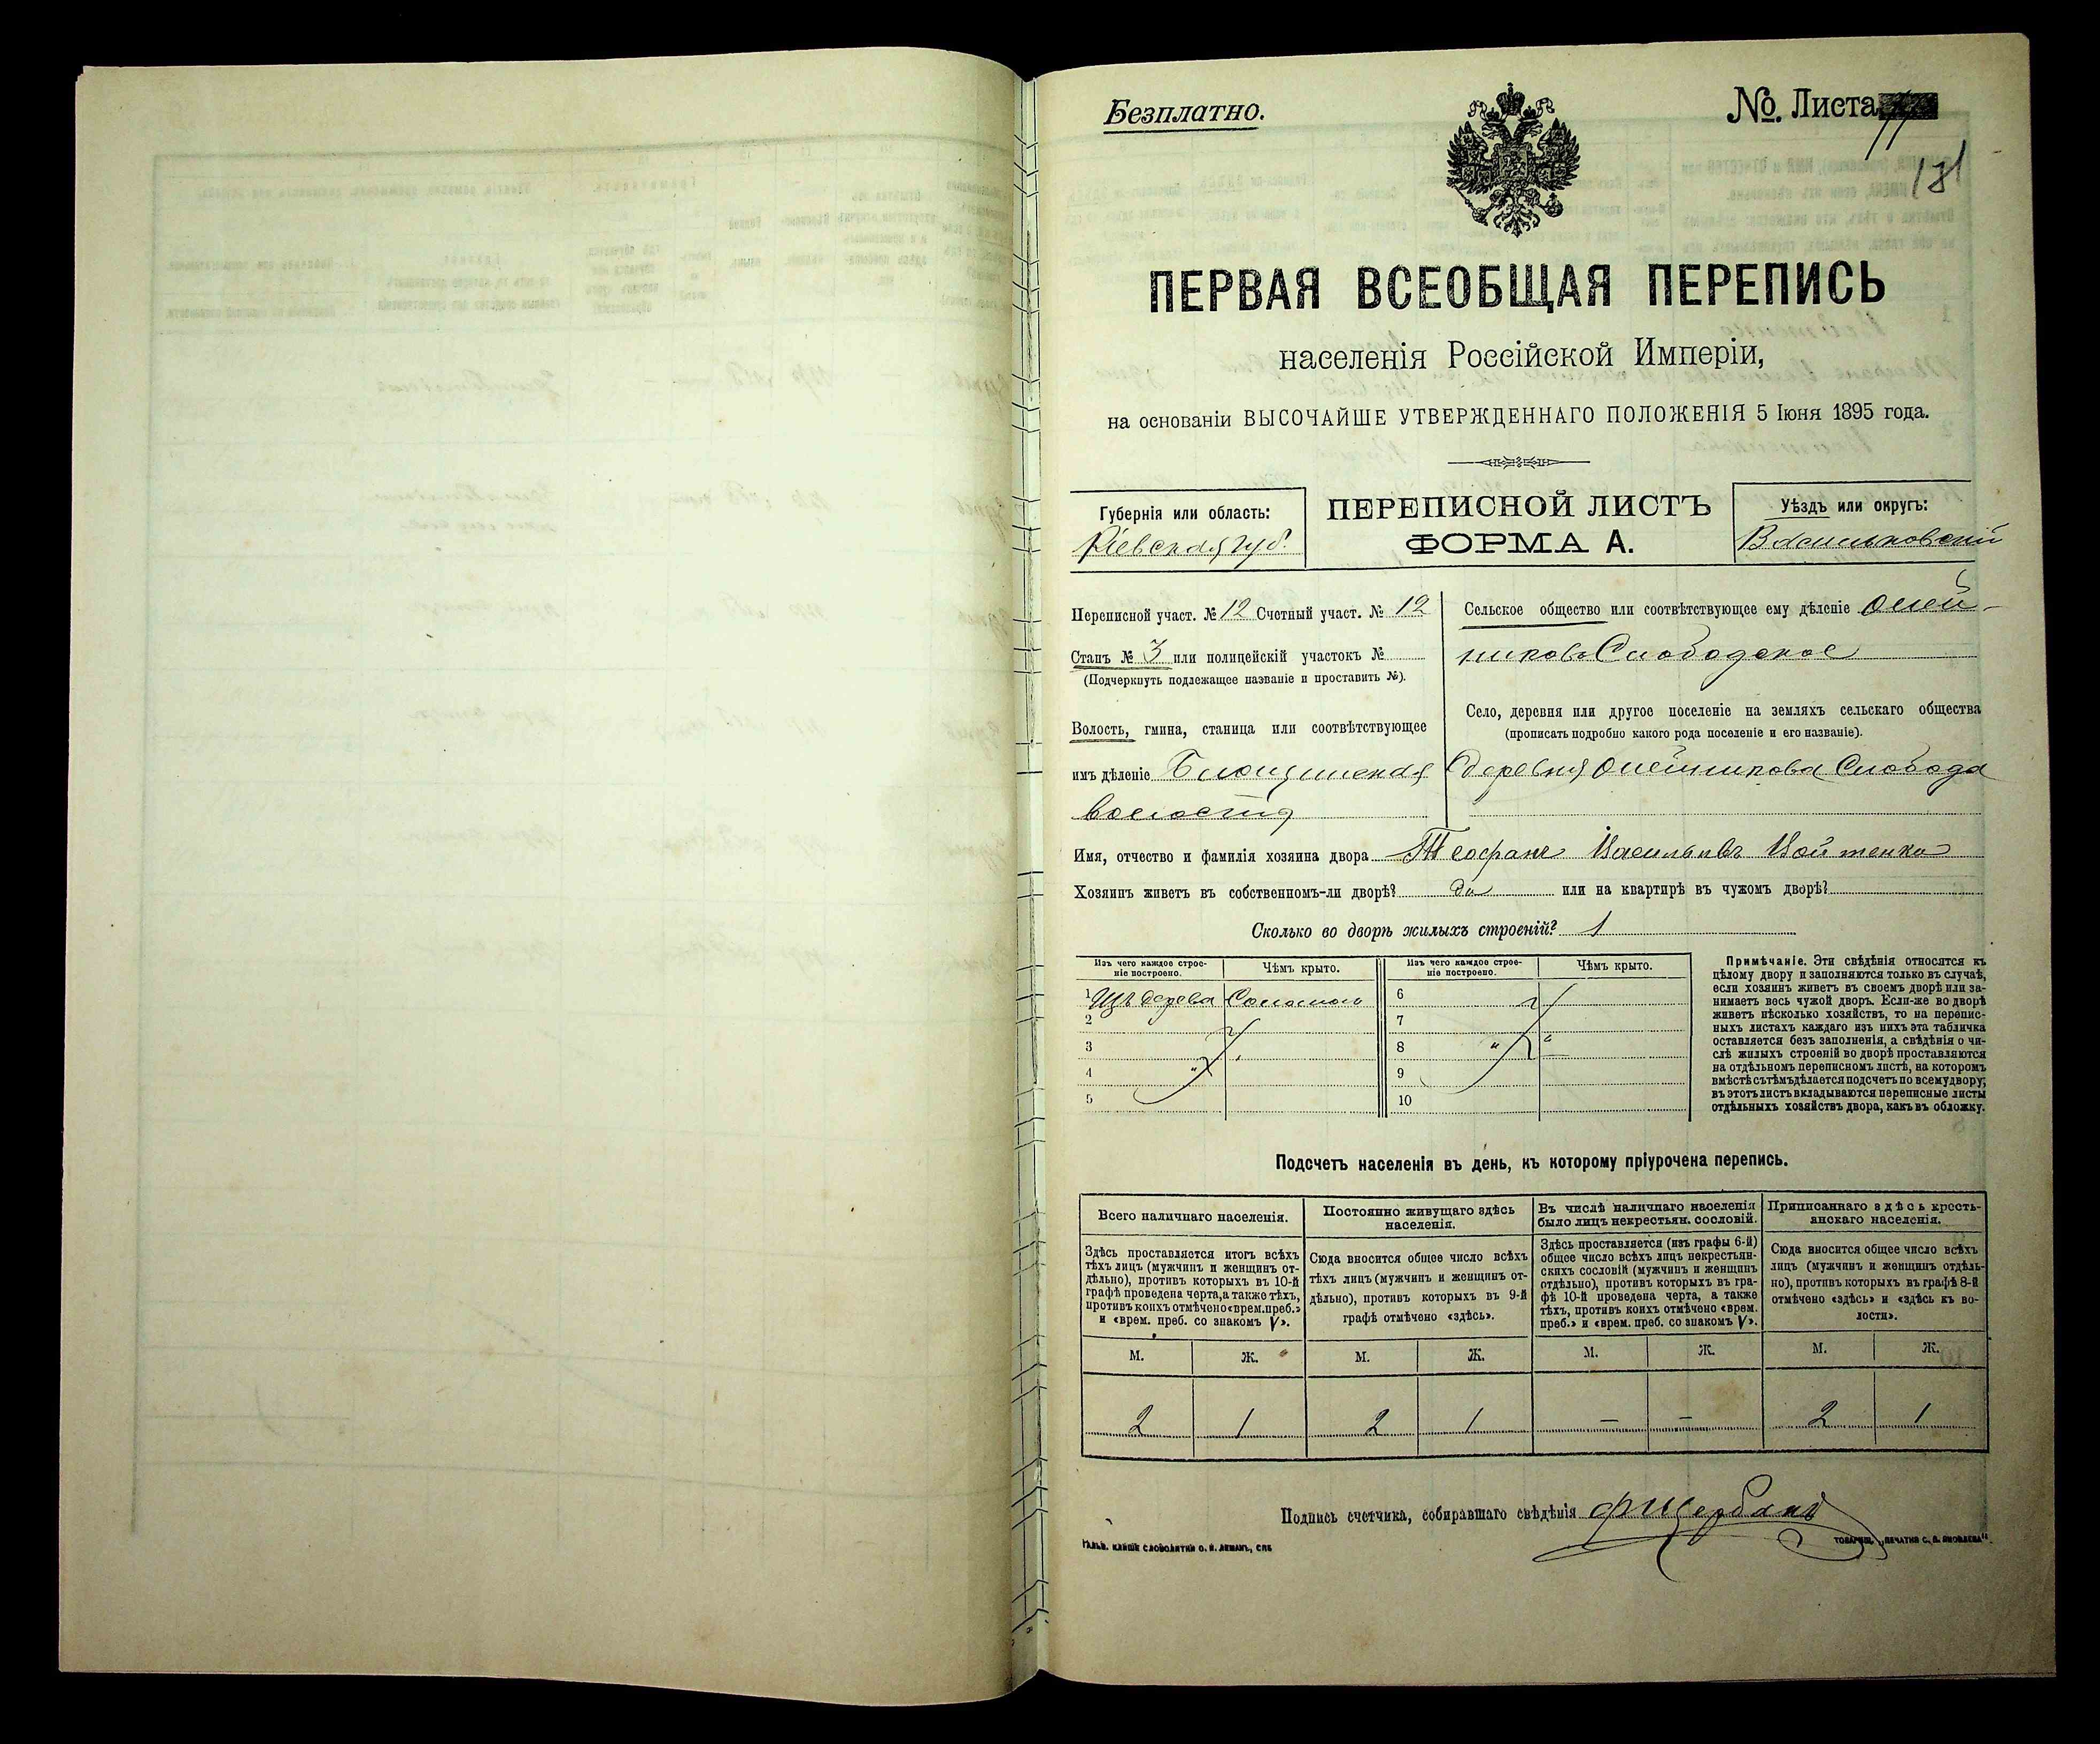 Безплатно.
№. Листа
11
181
ПЕРВАЯ ВСЕОБЩАЯ ПЕРЕПИСЬ
населенія Россійской Имперіи,
на основаніи ВЫСОЧАЙШЕ УТВЕРЖДЕННАГО ПОЛОЖЕНІЯ 5 Іюня 1895 года.
Губернія или область:
Кіевская губ.
ПЕРЕПИСНОЙ ЛИСТЪ
ФОРМА А.
Уѣздъ или округъ:
Васильковскій
Переписной участ. № 12 Счетный участ. № 12
Станъ № 3 или полицейскій участокъ №
(Подчеркнуть подлежащее названіе и проставить №).
Волость, гмина, станица или соотвѣтствующее
имъ дѣленіе
волость
Сельское общество или соотвѣтствующее ему дѣленіе Олей-
никово Слободское
Село, деревня или другое поселеніе на земляхъ сельскаго общества
(прописать подробно какого рода поселеніе и его названіе).
деревня Олейникова Слобода
Имя, отчество и фамилія хозяина двора Теофанъ Васильевъ Войтенко
Хозяинъ живетъ въ собственномъ-ли дворѣ? да или на квартирѣ въ чужомъ дворѣ?
Сколько во дворѣ жилыхъ строеній? 1
Изъ чего каждое строе-
ніе построено.
Чѣмъ крыто.
Изъ чего каждое строе-
ніе построено.
Чѣмъ крыто.
1 Изъ дерева Соломою
2
3
4
5
6
7
8
9
10
Примѣчаніе. Эти свѣдѣнія относятся къ
цѣлому двору и заполняются только въ случаѣ,
если хозяинъ живетъ въ своемъ дворѣ или за-
нимаетъ весь чужой дворъ. Если-же во дворѣ
живетъ нѣсколько хозяйствъ, то на перепис-
ныхъ листахъ каждаго изъ нихъ эта табличка
оставляется безъ заполненія, а свѣдѣнія о чи-
слѣ жилыхъ строеній во дворѣ проставляются
на отдѣльномъ переписномъ листѣ, на которомъ
вмѣстѣ съ тѣмъ дѣлается подсчетъ по всему двору;
въ этотъ листъ вкладываются переписные листы
отдѣльныхъ хозяйствъ двора, какъ въ обложку.
Подсчетъ населенія въ день, къ которому пріурочена перепись.
Всего наличнаго населенія.
Здѣсь проставляется итогъ всѣхъ
тѣхъ лицъ (мужчинъ и женщинъ от-
дѣльно), противъ которыхъ въ 10-й
графѣ проведена черта, а также тѣхъ,
противъ коихъ отмѣчено «врем. преб.»
и «врем. преб. со знакомъ V».
Постоянно живущаго здѣсь
населенія.
Сюда вносится общее число всѣхъ
тѣхъ лицъ (мужчинъ и женщинъ от-
дѣльно), противъ которыхъ въ 9-й
графѣ отмѣчено «здѣсь».
Въ числѣ наличнаго населенія
было лицъ некрестьян. сословій.
Здѣсь проставляется (изъ графы 6-й)
общее число всѣхъ лицъ некрестьян-
скихъ сословій (мужчинъ и женщинъ
отдѣльно), противъ которыхъ въ гра-
фѣ 10-й проведена черта, а также
тѣхъ, противъ коихъ отмѣчено «врем.
преб.» и «врем. преб. со знакомъ V».
Приписаннаго здѣсь кресть-
янскаго населенія.
Сюда вносится общее число всѣхъ
лицъ (мужчинъ и женщинъ отдѣль-
но), противъ которыхъ въ графѣ 8-й
отмѣчено «здѣсь» и «здѣсь къ во-
лости».
М. Ж. М. Ж. М. Ж. М. Ж.
2 1 2 1 — — 2 1
Подпись счетчика, собиравшаго свѣдѣнія Ф Щербакъ
ГАЛЬВ. КЛИШЕ СЛОВОЛИТНИ О. И. ЛЕМАНЪ, СПБ
ТОВАРИЩ. „ПЕЧАТНЯ С. П. ЯКОВЛЕВА"